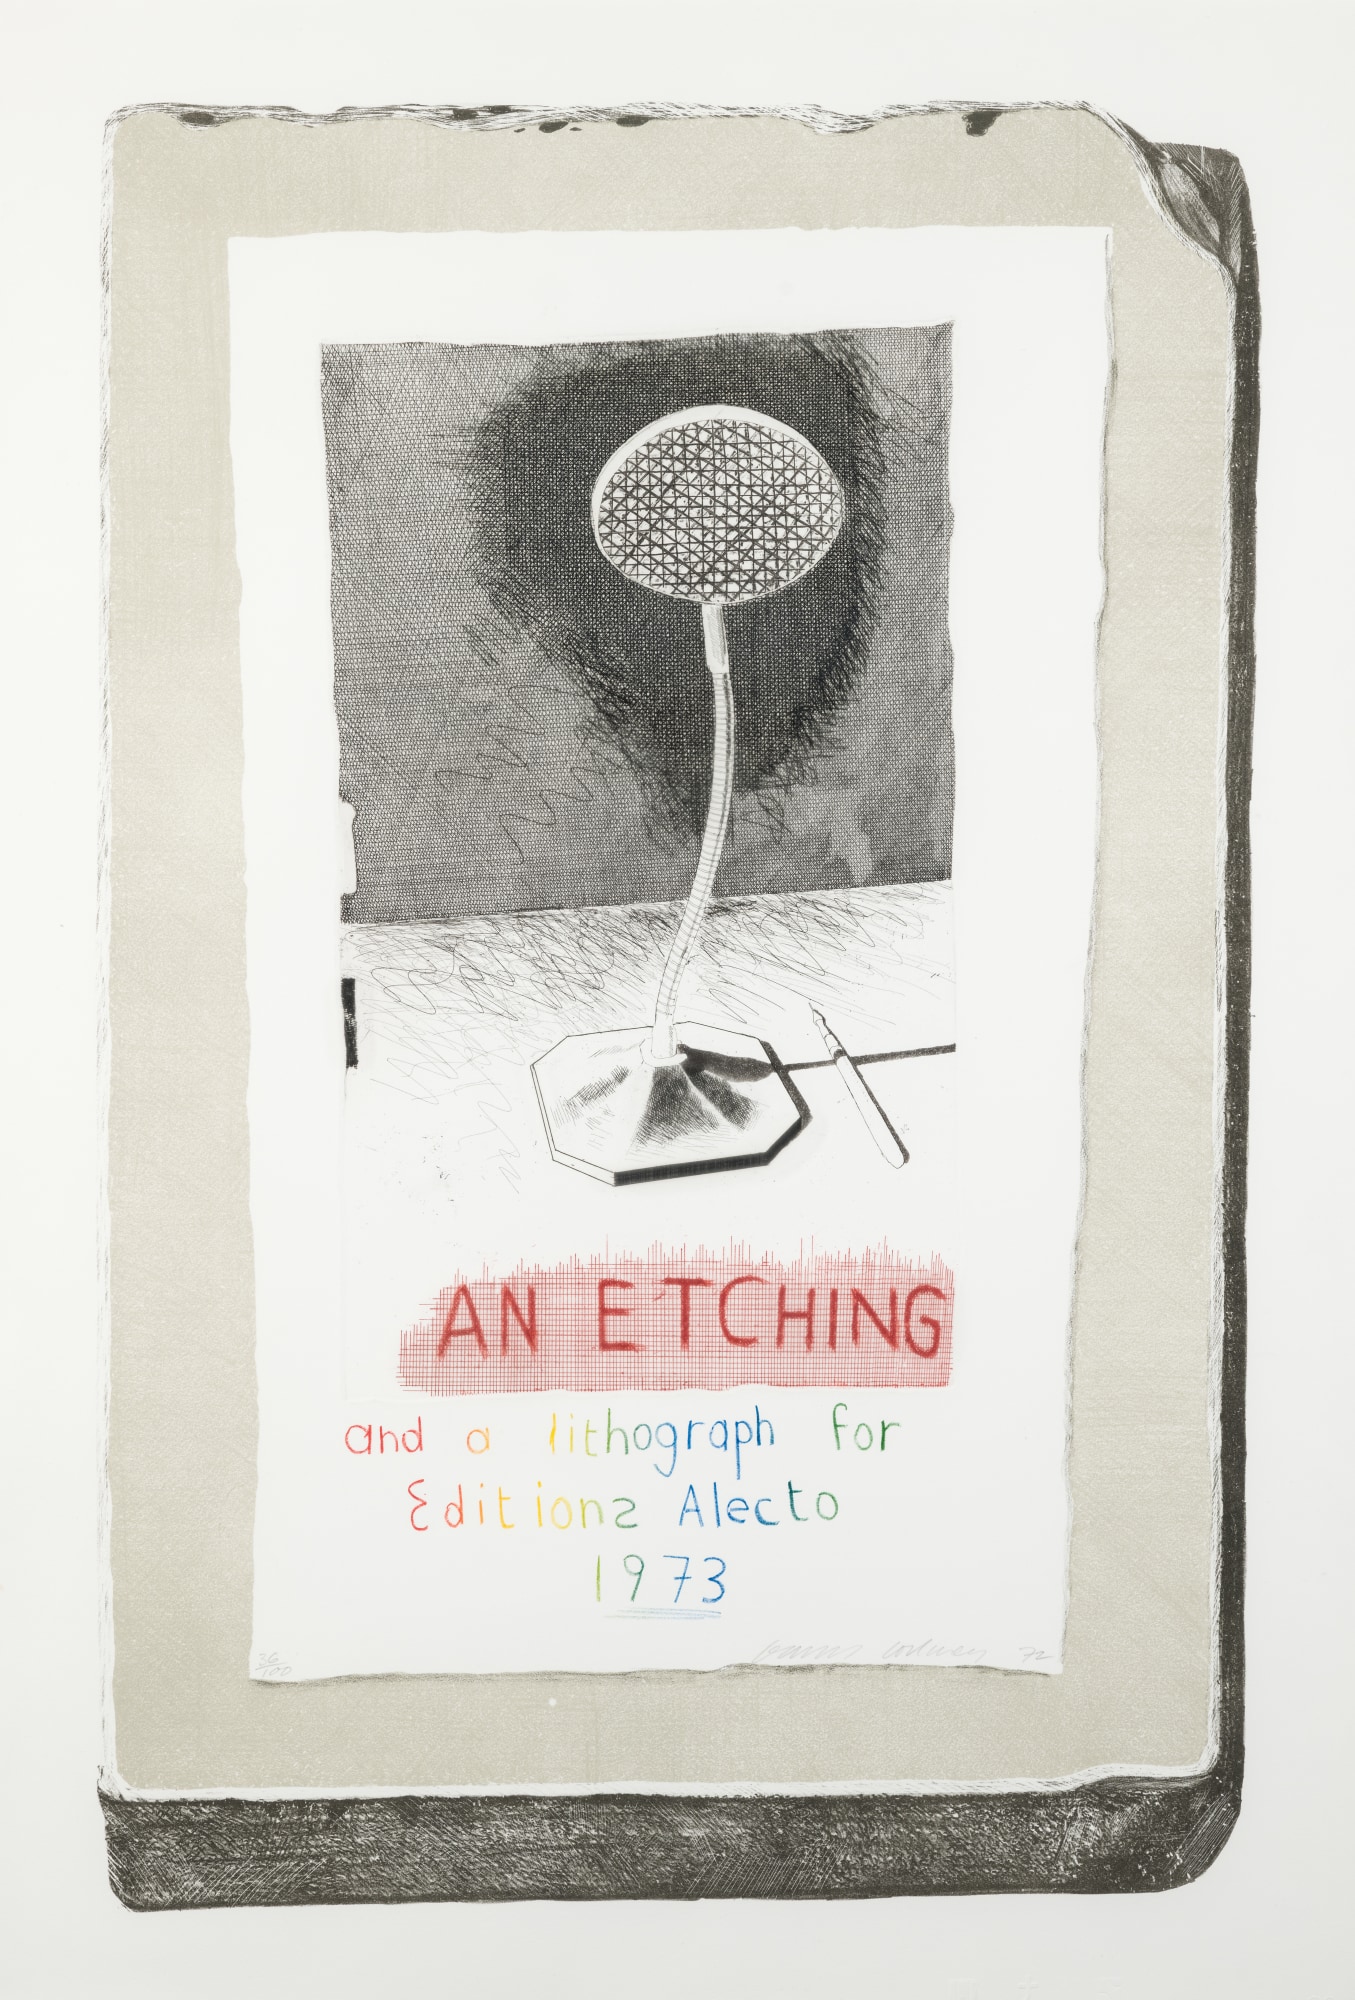 AN ETCHING
and a lithograph for
Editions Alecto
1973
36/100
72